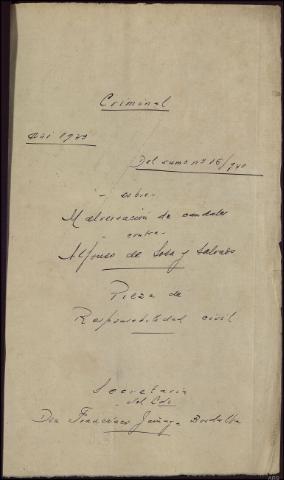 Criminal
Año 1940
Del sumo nº 16/940
- sobre -
Malversación de caudales
- contra -
Alfonso de Sosa y Salvado
Pieza de
Responsabilidad civil
Secretaria
del Ldo
Don Francisco